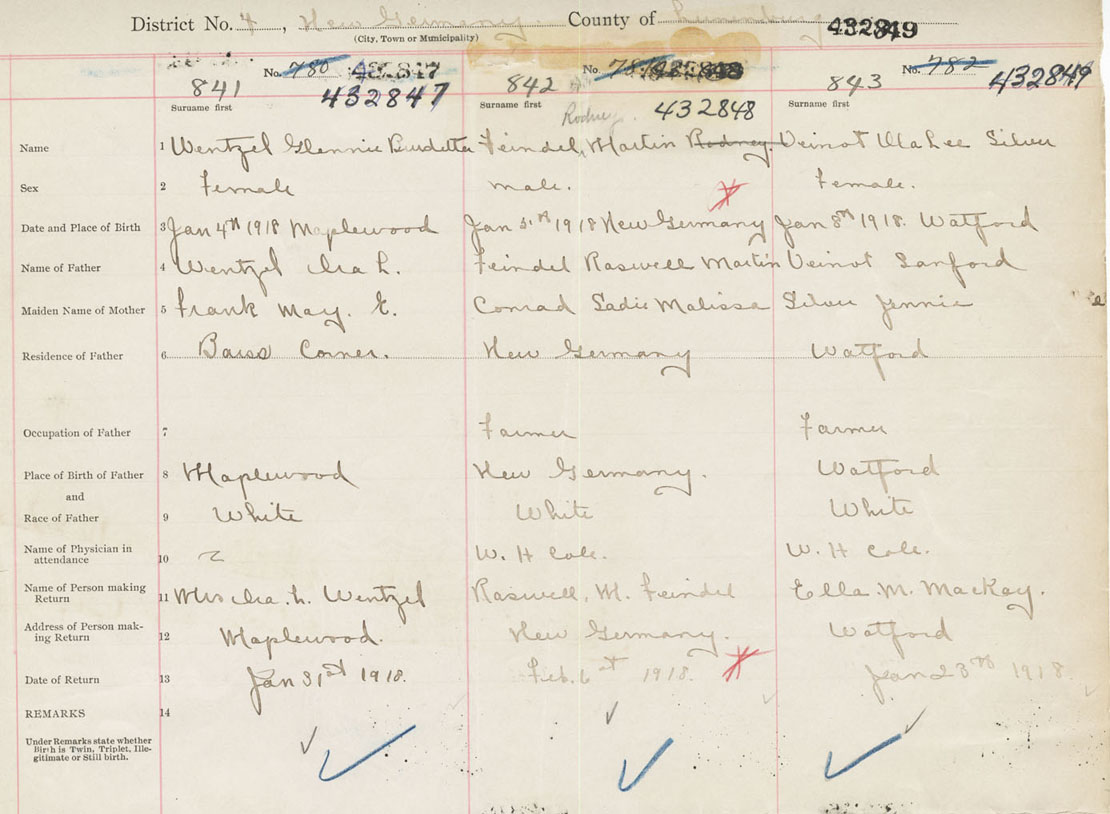 District No. 4, New Germany. County of Lunenburg 432849
(City, Town or Municipality)
No. 780 432847 No. 781 432848 No. 782 432849
841 432847 842 843
Surname first Surname first Surname first
Rodney. 432848
Name 1 Wentzel Glennie Burdetta Feindel, Martin Rodney. Veinot Ula Lee Silver
Sex 2 Female male. Female.
Date and Place of Birth 3 Jan 4th 1918 Maplewood Jan 31st 1918 New Germany Jan 8th 1918. Watford
Name of Father 4 Wentzel Ira L. Feindel Raswell Martin Veinot Sanford
Maiden Name of Mother 5 Frank May. E. Conrad Sadie Malissa Silver Jennie
Residence of Father 6 Barss Corner. New Germany Watford
Occupation of Father 7 Farmer Farmer
Place of Birth of Father 8 Maplewood New Germany. Watford
and
Race of Father 9 White White White
Name of Physician in
attendance 10 W. H Cole. W. H Cole.
Name of Person making
Return 11 Mrs Ira. L. Wentzel Raswell. M. Feindel Ella. M. MacKay.
Address of Person mak-
ing Return 12 Maplewood. New Germany. Watford
Date of Return 13 Jan 31st 1918. Feb. 6st 1918. Jan 23rd 1918
REMARKS 14
Under Remarks state whether
Birth is Twin, Triplet, Ille-
gitimate or Still birth.